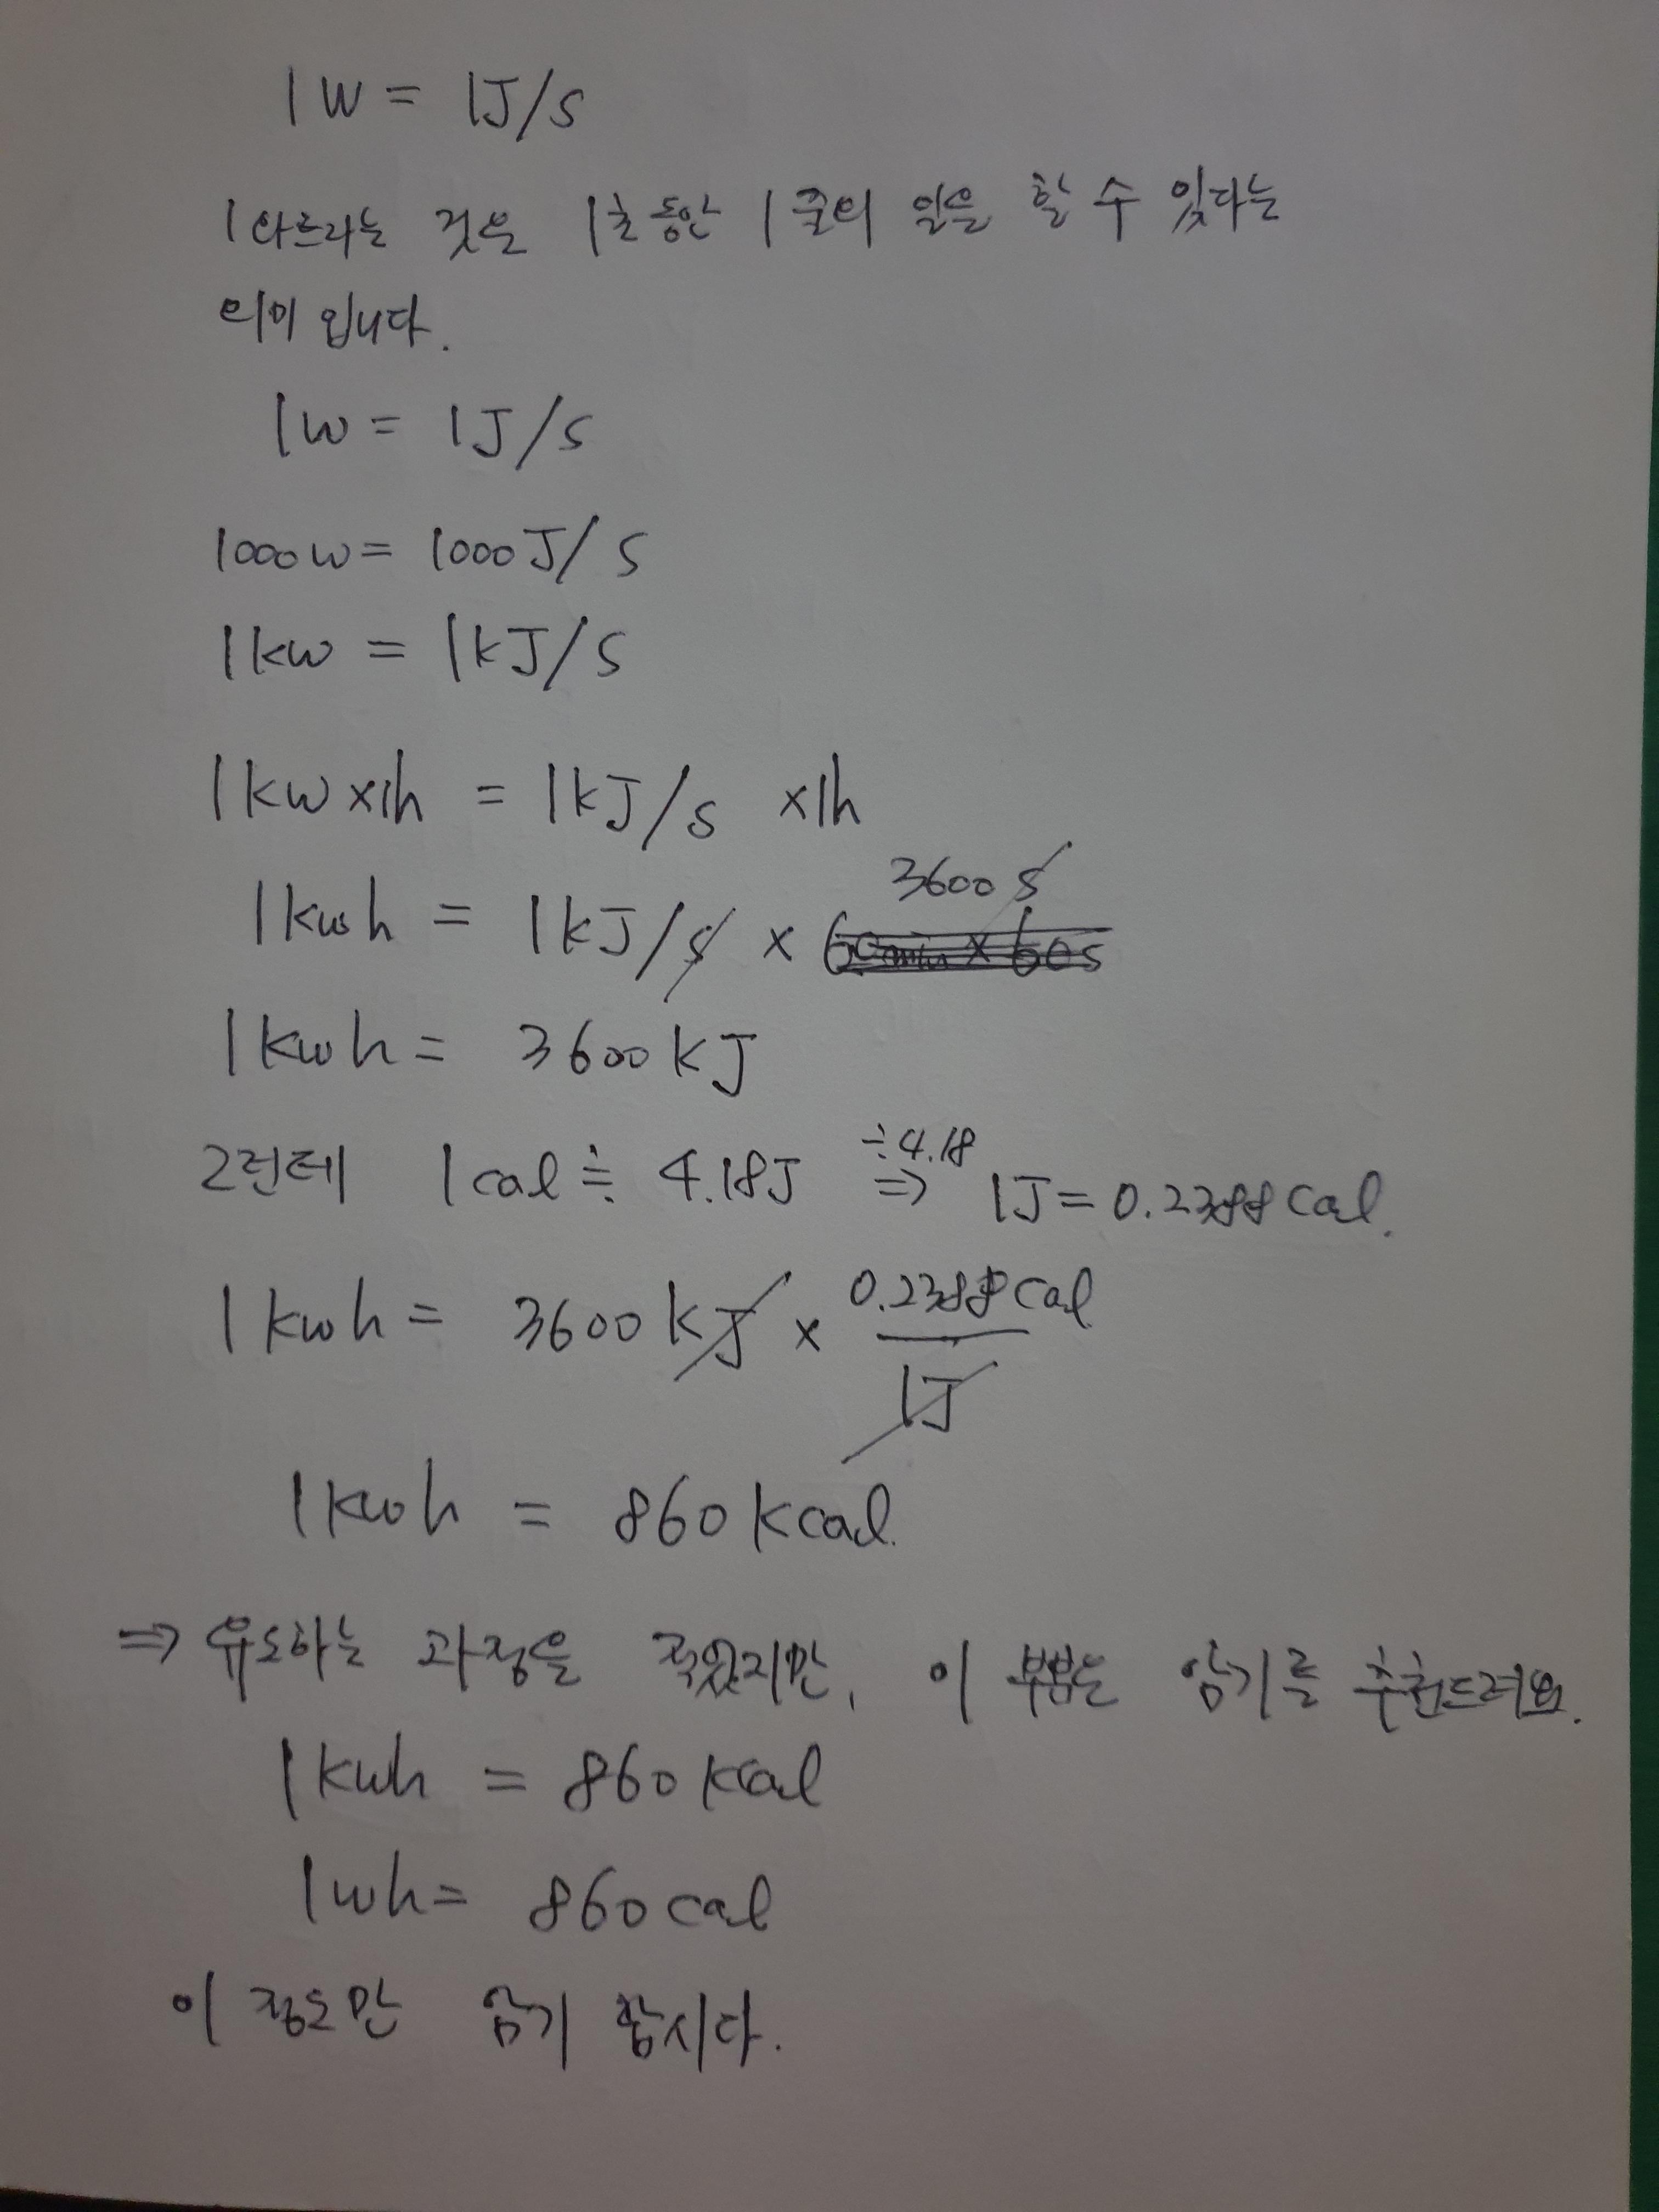 1W = 1J/s
1와트라는 것은 1초동안 1줄의 일을 할 수 있다는
의미 입니다.
1W = 1J/s
1000W = 1000J/s
1kW = 1kJ/s
1kW×1h = 1kJ/s ×1h
3600s
1kwh = 1kJ/s × 60min × 60s
1kwh = 3600kJ
그런데 1cal ≒ 4.18J ÷4.18 ⇒ 1J = 0.2388cal.
1kwh = 3600kJ × 0.2388cal
1J
1kwh = 860kcal.
⇒ 유도하는 과정을 적었지만, 이 부분은 암기를 추천드려요.
1kwh = 860kcal
1wh = 860cal
이 정도만 암기 합시다.